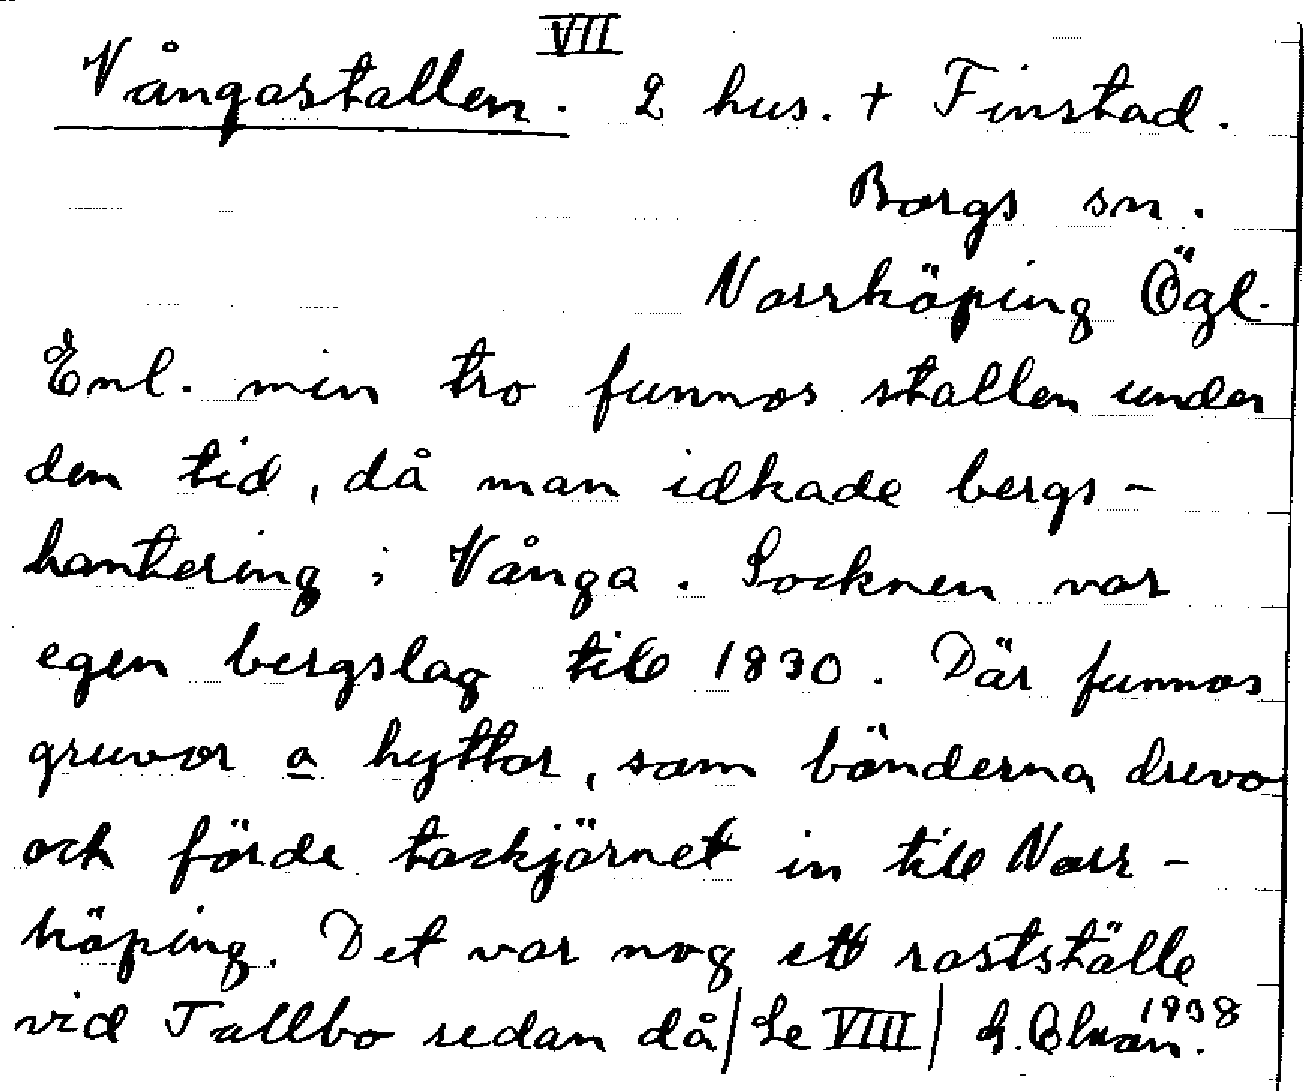 VII
Vångastallen. 2 hus. + Finstad.
Borgs sn.
Norrköping Ögl.
Enl. min tro funnos stallen under
den tid, då man idkade bergs-
hantering i Vånga. Socknen var
egen bergslag till 1830. Där funnos
gruvor o hyttor, som bönderna drevo
och förde tackjärnet in till Norr-
köping. Det var nog ett rastställe
vid Tallbo sedan då/Se VIII/ 1938